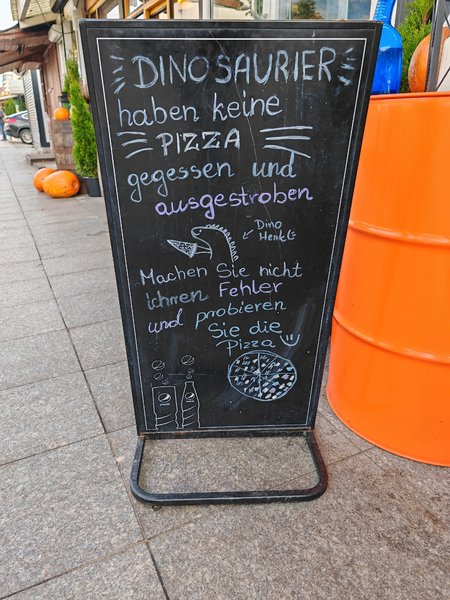 DINOSAURIER
haben keine
PIZZA
gegessen und
ausgestroben
Dino
Henk
Machen Sie nicht
ichren Fehler
und probieren
Sie die
Pizza